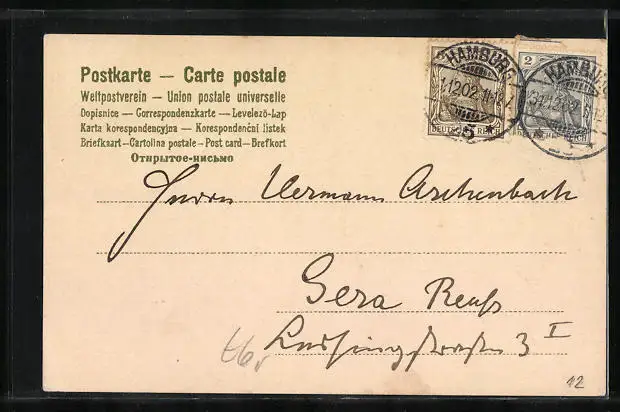 Postkarte — Carte postale
Weltpostverein — Union postale universelle
Dopisnice — Correspondenzkarte — Levelező-Lap
Karta korespondencyjna — Korespondenční lístek
Briefkaart — Cartolina postale — Post card — Brefkort
Открытое-письмо
HAMBURG
12.02.
5
DEUTSCHES REICH
2
HAMBURG
DEUTSCHES REICH
Herrn Hermann Aschenbach
Gera Reuß
Lessingstraße 3 I
12